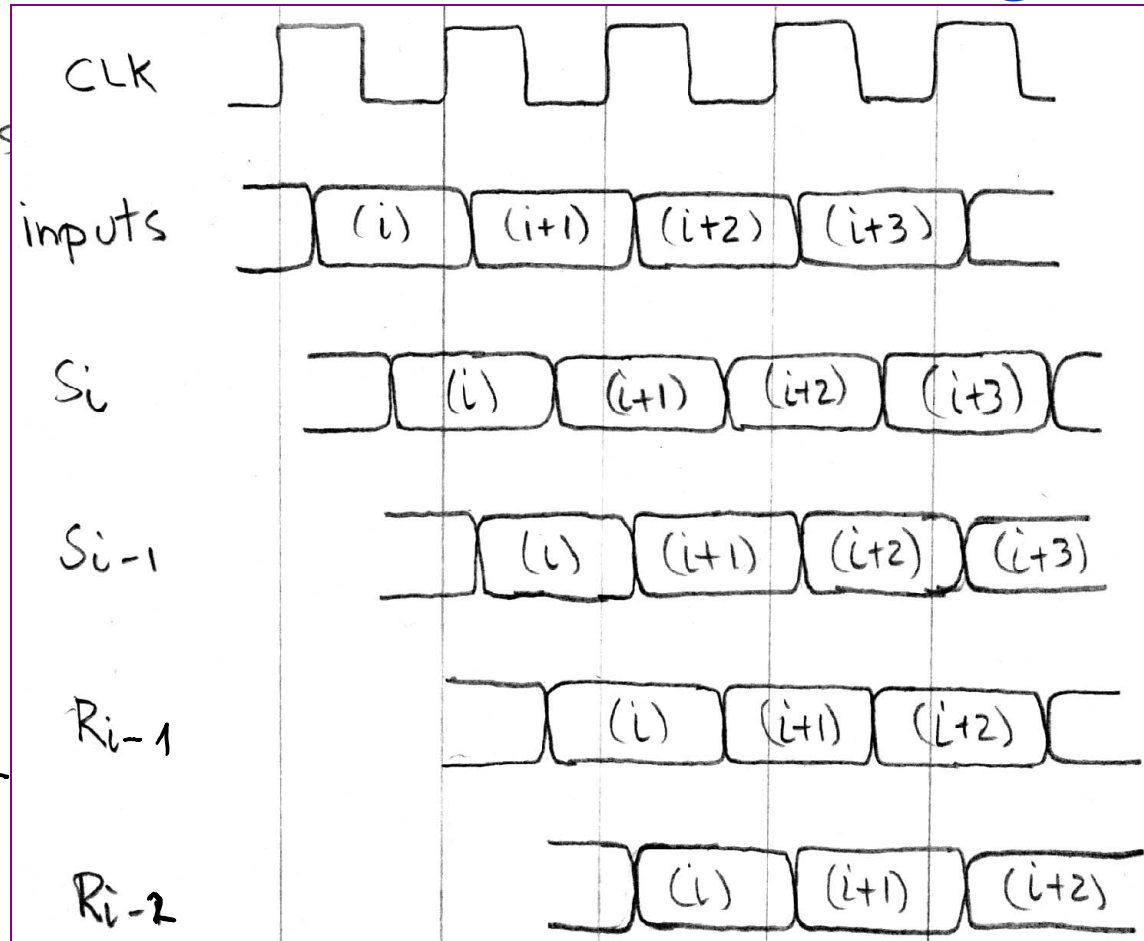 CLK
inputs (i) (i+1) (i+2) (i+3)
Si (i) (i+1) (i+2) (i+3)
Si-1 (i) (i+1) (i+2) (i+3)
Ri-1 (i) (i+1) (i+2)
Ri-2 (i) (i+1) (i+2)